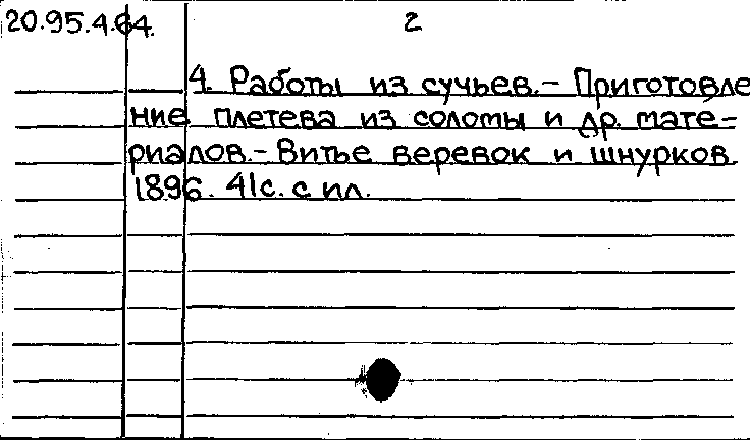 20.95.4.64. 2
4. Работы из сучьев.- Приготовле
ние плетева из соломы и др. мате-
риалов.- Витье веревок и шнурков.
1896. 41с. с ил.